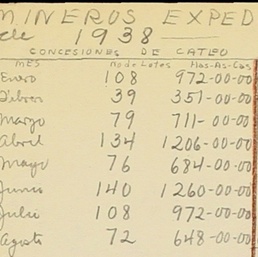 MINEROS EXPED
de 1938
CONCESIONES DE CATEO
MES No de Lotes Has-As-Cas
Enero 108 972-00-00
Febrero 39 351-00-00
Marzo 79 711-00-00
Abril 134 1206-00-00
Mayo 76 684-00-00
Junio 140 1260-00-00
Julio 108 972-00-00
Agosto 72 648-00-00